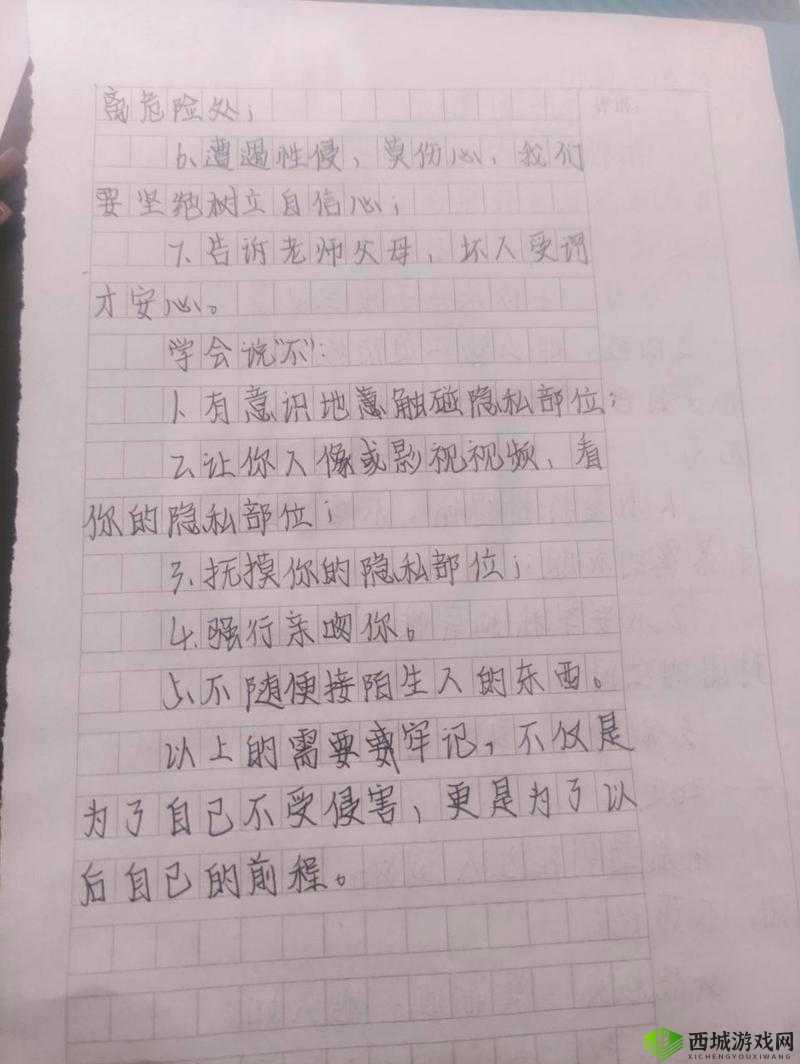 离危险处；
6.遭遇性侵，莫伤心，我们
要坚强树立自信心；
7.告诉老师父母，坏人受罚
才安心。
学会说"不"：
1.有意识地触碰隐私部位；
2.让你人像或影视视频，看
你的隐私部位；
3.抚摸你的隐私部位；
4.强行亲吻你。
5.不随便接陌生人的东西。
以上的需要我牢记，不仅是
为了自己不受侵害，更是为了以
后自己的前程。
西城游戏网
XICHENGYOUXIWANG